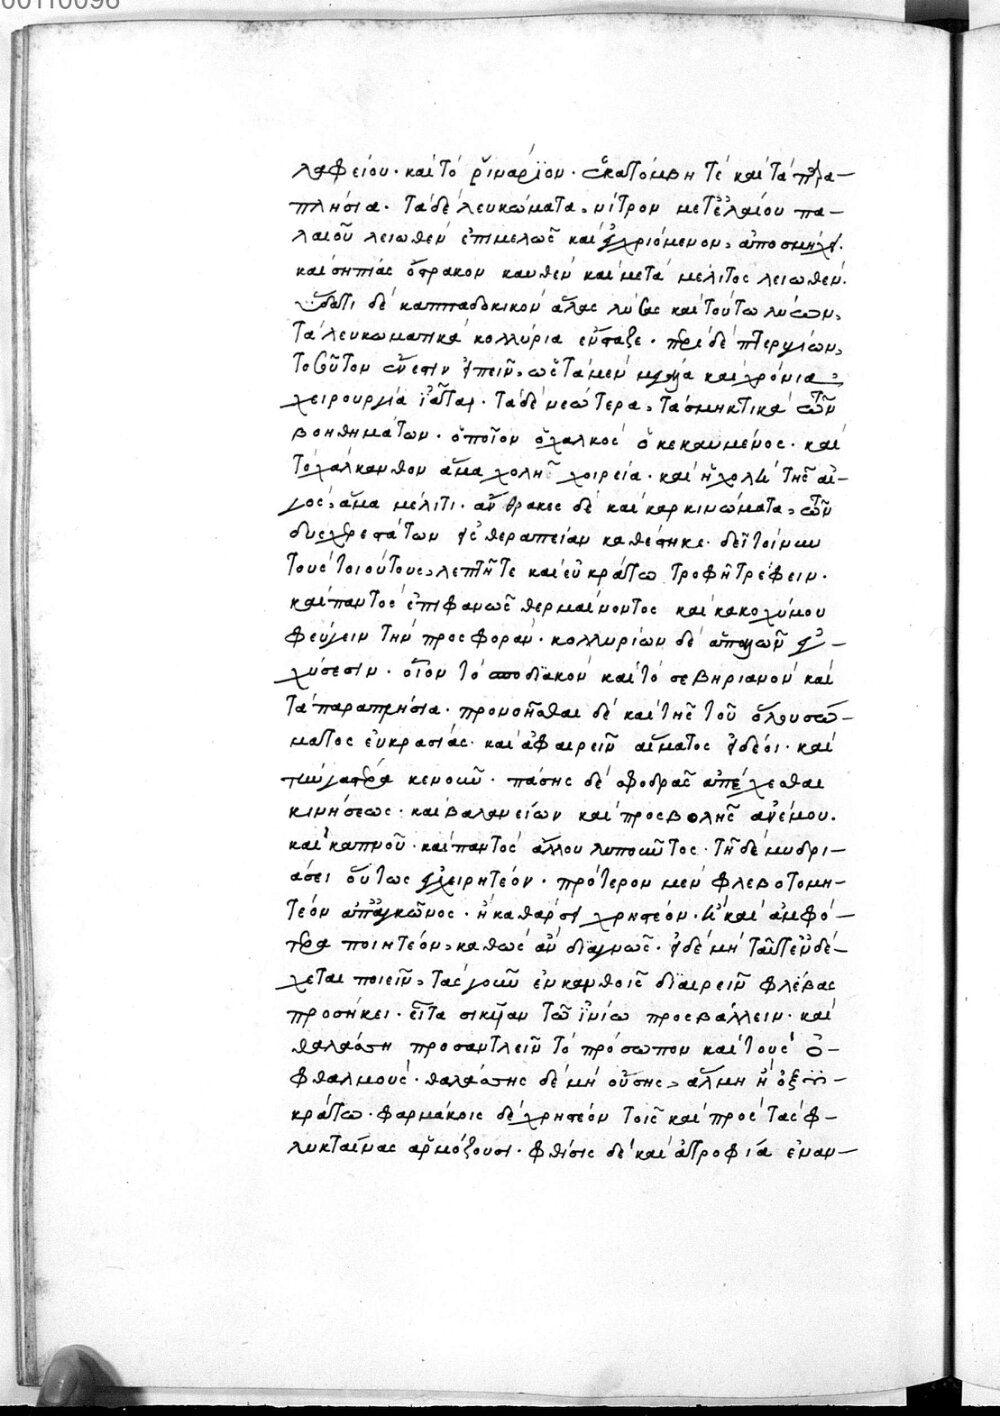 00110098
λαφείου· καὶ τὸ ῥιναρίον· ἑκατόμβη τὲ καὶ τὰ παρα-
πλήσια· τὰ δὲ λευκώματα, νίτρον μετ' ἐλαίου πα-
λαιοῦ λειωθὲν ἐπιμελῶς καὶ ἐγχριόμενον, ἀποσμήχει·
καὶ σηπίας ὄστρακον καυθὲν καὶ μετὰ μέλιτος λειωθέν·
ὕδατι δὲ καππαδοκικὸν ἅλας λύσας καὶ τούτω λύων,
τὰ λευκωματικὰ κολλύρια εὔταξε· περὶ δὲ πτερυγίων,
τοσοῦτον ἔνεστιν εἰπεῖν, ὡς τὰ μὲν μεγάλα καὶ χρόνια,
χειρουργία ἰᾶται· τὰ δὲ νεώτερα, τὰ σμηκτικὰ τῶν
βοηθημάτων· ὁποῖον ὁ χαλκὸς ὁ κεκαυμένος· καὶ
τὸ χάλκανθον ἅμα χολῆ χοιρεία· καὶ ἡ χολὴ τῆς αἰ-
γὸς ἅμα μέλιτι· ἄνθρακες δὲ καὶ καρκινώματα, τῶν
δυσχερεστάτων εἰς θεραπείαν καθέστηκε· δεῖ τοίνυν
τοὺς τοιούτους, λεπτῆ τε καὶ εὐκράτω τροφῆ τρέφειν·
καὶ παντὸς ἐπιφανῶς θερμαίνοντος καὶ κακοχύμου
φεύγειν τὴν προσφοράν· κολλυρίων δὲ ἁπαλῶν ἐγ-
χύσεσιν· οἷον τὸ σποδιακὸν καὶ τὸ σεβηριανὸν καὶ
τὰ παραπλήσια· προνοῆσθαι δὲ καὶ τῆς τοῦ ὅλου σώ-
ματος εὐκρασίας· καὶ ἀφαιρεῖν αἵματος εἰ δέοι· καὶ
τὴν γαστέρα κενοῦν· πάσης δὲ σφοδρᾶς ἀπέχεσθαι
κινήσεως· καὶ βαλανείων καὶ προσβολῆς ἀνέμου·
καὶ καπνοῦ· καὶ παντὸς ἄλλου λυποῦντος· τῆ δὲ μυδρι-
άσει οὕτως ἐγχειρητέον· πρότερον μὲν φλεβοτομη-
τέον ἀπ' ἀγκῶνος· ἢ καθάρσει χρηστέον· ἢ καὶ ἀμφό-
τερα ποιητέον, καθὼς ἂν διαγνῶς· εἰ δὲ μὴ ταῦτ' ἐνδέ-
χεται ποιεῖν, τὰς γοῦν ἐν κανθοῖς διαιρεῖν φλέβας
προσήκει· εἶτα σικύαν τῶ ἰνίω προσβάλλειν· καὶ
θαλάσση προσαντλεῖν τὸ πρόσωπον καὶ τοὺς ὀ-
φθαλμούς· θαλάσσης δὲ μὴ οὔσης, ἅλμη ἢ ὀξυ-
κράτω· φαρμάκοις δὲ χρηστέον τοῖς καὶ πρὸς τὰς φ-
λυκταίνας ἁρμόζουσι· φθίσις δὲ καὶ ἀτροφία ἐναν-